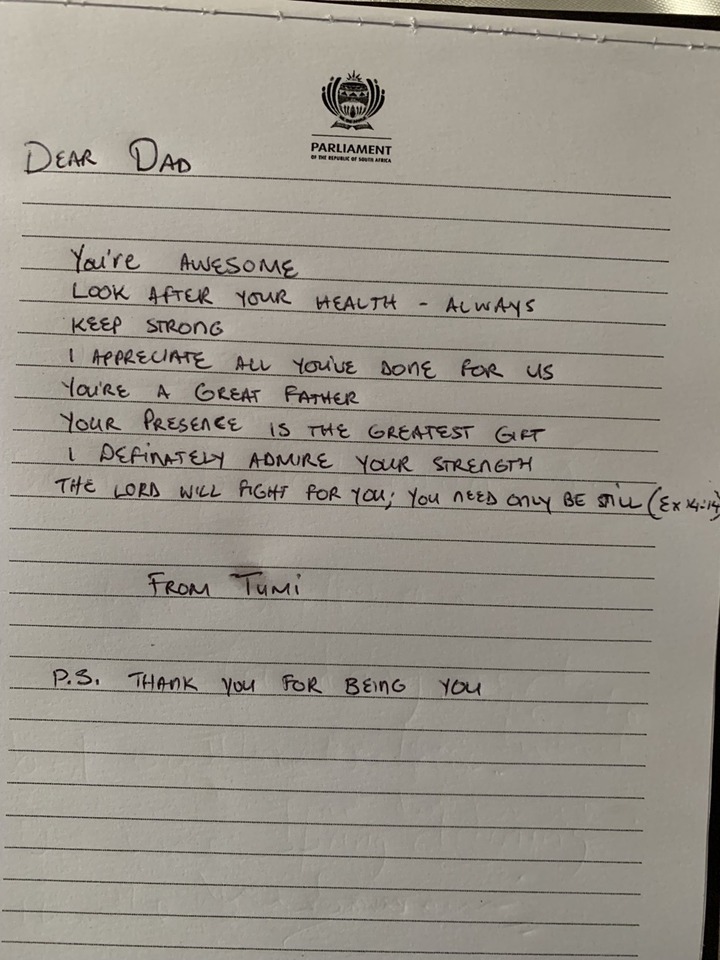 PARLIAMENT
OF THE REPUBLIC OF SOUTH AFRICA
DEAR DAD
You're AWESOME
LOOK AFTER YOUR HEALTH - ALWAYS
KEEP STRONG
I APPRECIATE ALL YOU'VE DONE FOR US
YOU'RE A GREAT FATHER
YOUR PRESENCE IS THE GREATEST GIFT
I DEFINATELY ADMIRE YOUR STRENGTH
THE LORD WILL FIGHT FOR YOU; YOU NEED ONLY BE STILL (Ex 14:14)
FROM TUMI
P.S. THANK YOU FOR BEING YOU